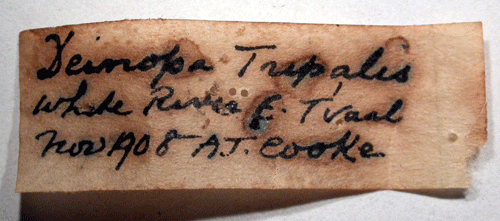 Deinopa Tripalis
White River E. T'vaal
Nov 1908 A.J. Cooke